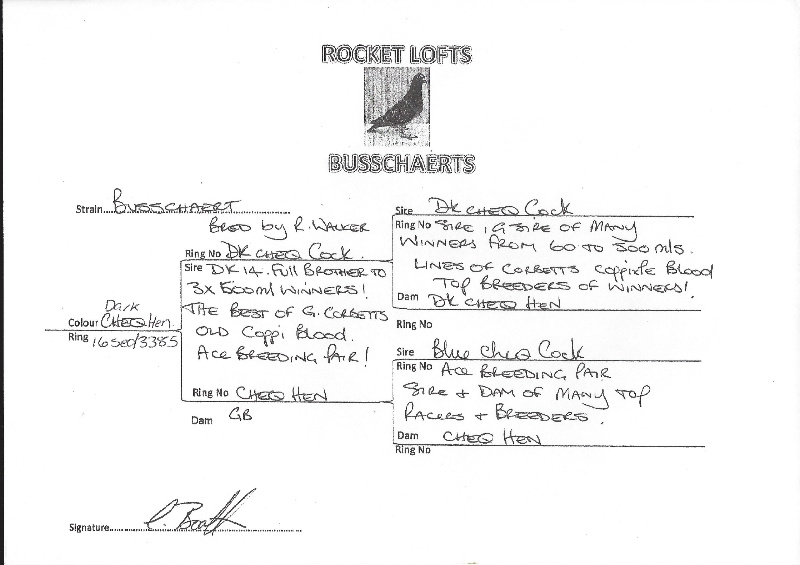 ROCKET LOFTS
BUSSCHAERTS
Strain BUSSCHAERT
BRED by R. WALKER
Ring No DK CHEQ COCK.
Sire DK 14. FULL BROTHER TO
3X 500ml WINNERS!
THE BEST OF G. CORBETTS
OLD COPPI BLOOD.
ACE BREEDING PAIR!
Ring No CHEQ HEN
Dam GB
Dark
Colour CHEQ HEN.
Ring 16 Sec/3385
Sire DK CHEQ COCK
Ring No SIRE, G SIRE OF MANY
WINNERS FROM 60 TO 500 mls.
LINES OF CORBETTS COPPI BLOOD
TOP BREEDERS OF WINNERS!
Dam DK CHEQ HEN
Ring No
Sire Blue CHEQ COCK
Ring No ACE BREEDING PAIR
SIRE + DAM OF MANY TOP
RACERS + BREEDERS.
Dam CHEQ HEN
Ring No
Signature